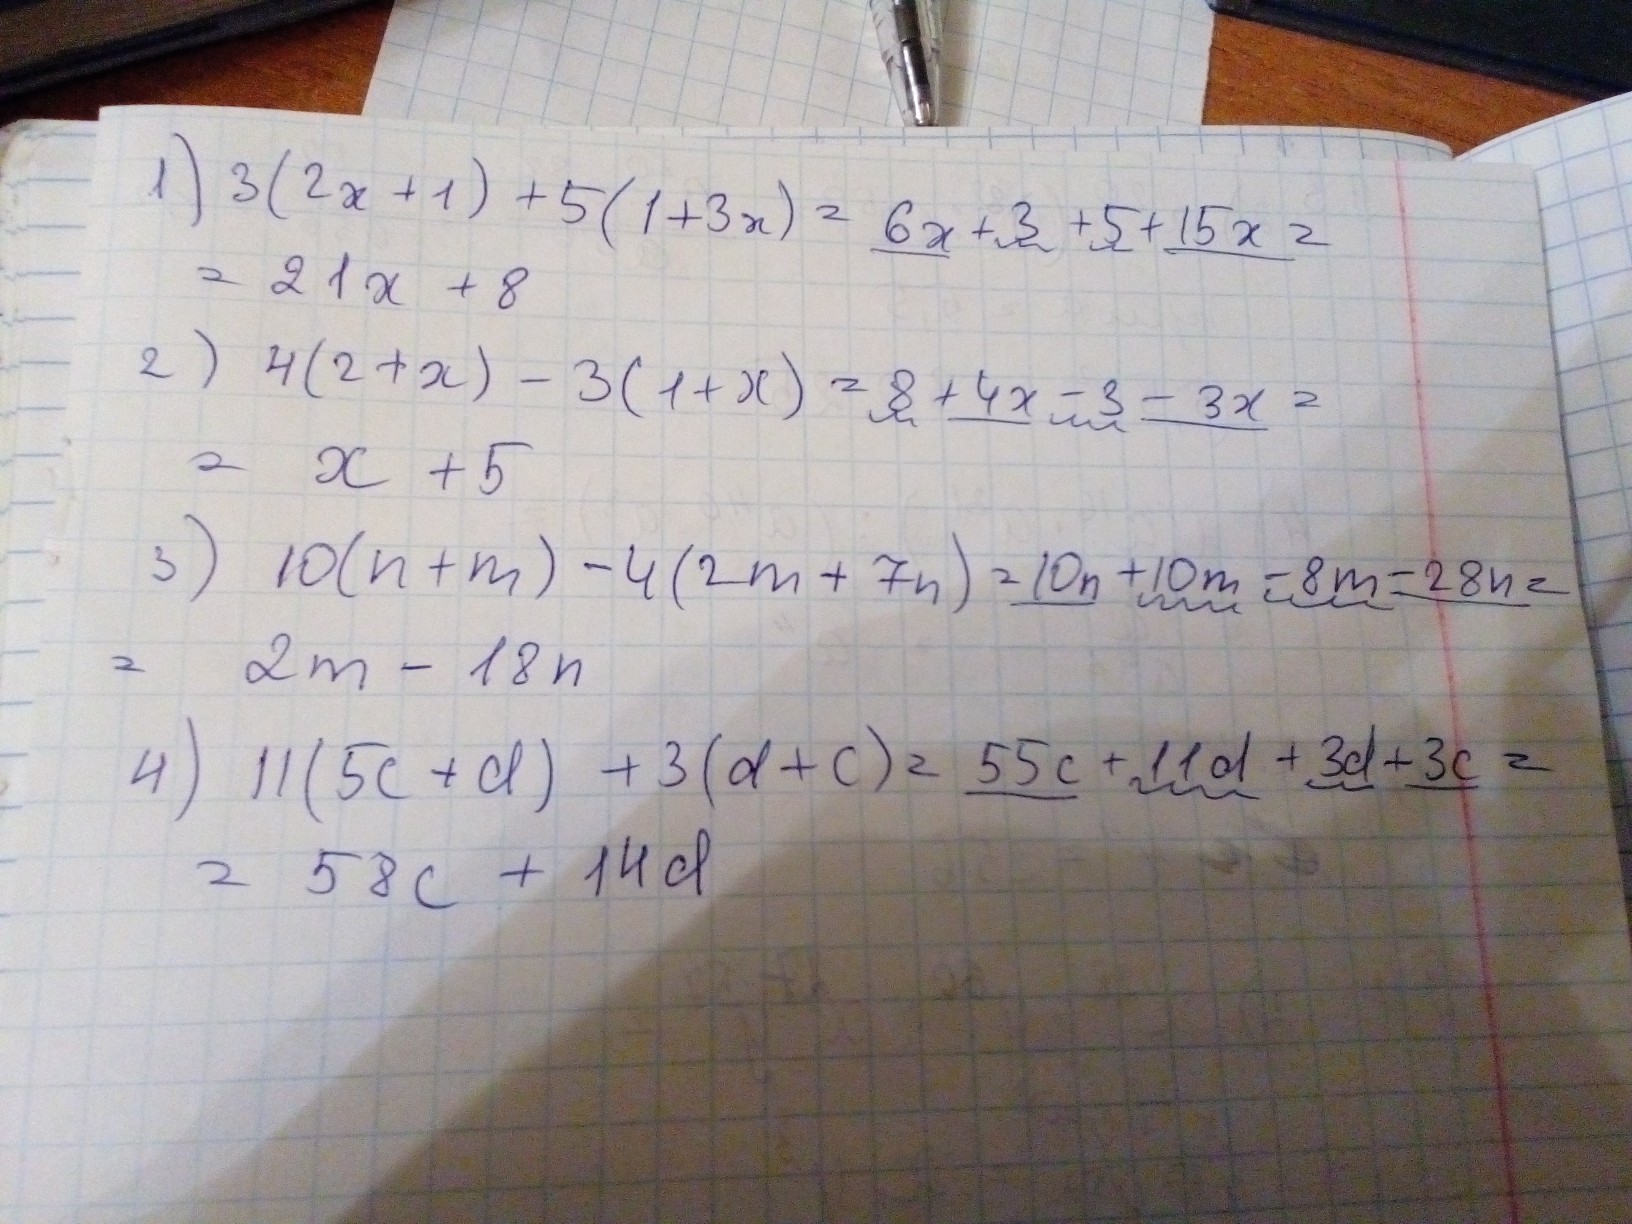 1) 3(2x+1) +5(1+3x) = 6x+3+5+15x =
= 21x +8
2) 4(2+x) - 3(1+x) = 8+4x-3-3x =
= x +5
3) 10(n+m) -4(2m+7n) = 10n+10m-8m-28n =
= 2m - 18n
4) 11(5c+d) +3(d+c) = 55c+11d+3d+3c =
= 58c + 14d